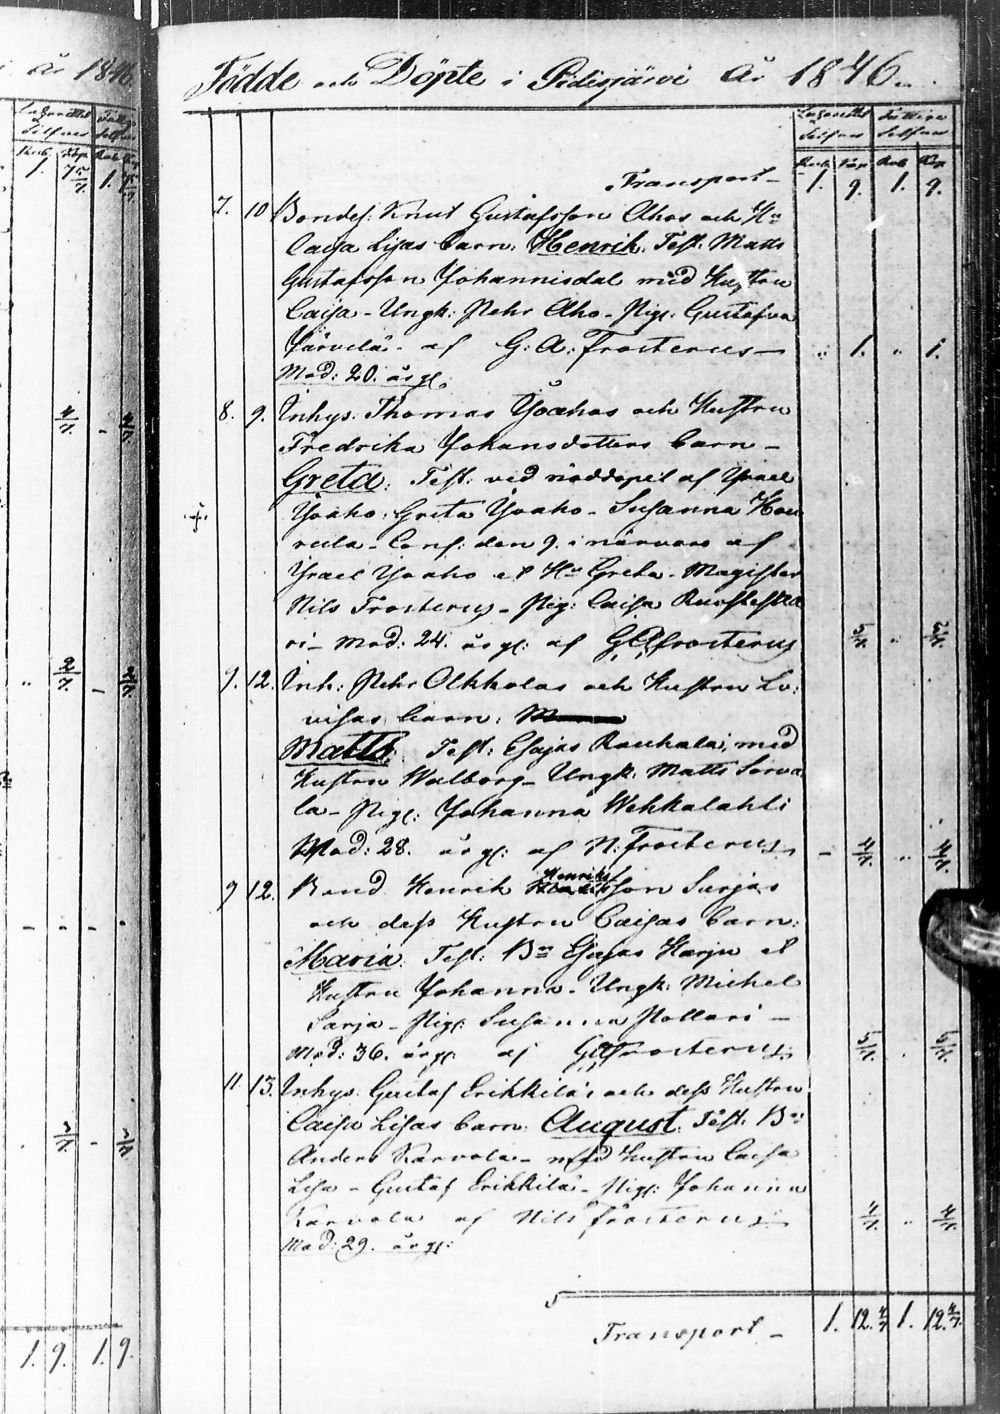 År 1846
Födde och Döpte i Pidisjärvi År 1846
Lazarettet Silfver Fattiga Silfver
Rub. Kop. Rub. Kop.
Transport 1. 9. 1. 9.
7. 10 Bondes: Knut Gustafsson Ahos och Hu
Caisa Lisas barn: Henrik. Test: Matts
Gustafsson Johannisdal med Hustru
Caisa - Ungk: Pehr Aho - Pig: Gustafva
Järvelä - af G: A: Frosterus - " 1. " 1.
Mod: 20. årg.
8. 9. Inhys: Thomas Yoahos och Hustru
Fredrika Johansdotters barn -
Greta: Test: ved nöddopet af Ysrael
Yoaho, Greta Yoaho - Susanna
Conf: den 9. i närvaro af
Ysrael Yoaho et Hu Greta - Magister
Nils Frosterus - Pig: Caisa
ri - Mod: 24. årg: af GAFrosterus 5/7. " 5/7.
9. 12. Inh: Pehr Olkkolas och Hustru Lo-
visas barn:
Matts: Test: Esajas Rauhala, med
Hustru Walborg - Ungk: Matts Sorva
la - Pig: Johanna Wehkalahti
Mod: 28. årg: af N: Frosterus - 4/7. " 4/7.
9 12. Bond. Henrik Henriksson Sarjas
och dess Hustru Caisas barn:
Maria: Test: Bn Esajas Karju et
Hustru Johanna - Ungk: Michel
Sarja - Pig: Susanna Pollari -
Mod: 36. årg: af GAFrosterus 5/7. " 5/7.
11. 13. Inhys: Gustaf Erikkilä's och dess Hustru
Caisa Lisas barn: August: Test: Bn
Anders Karvola - med Hustru Caisa
Lisa - Gustaf Erikkilä - Pig: Johanna
Karvola af Nils Frosterus - 4/7. " 4/7.
Mod: 29. årg:
Transport - 1. 12. 4/7 1. 12. 4/7.
1. 9. 1. 9.